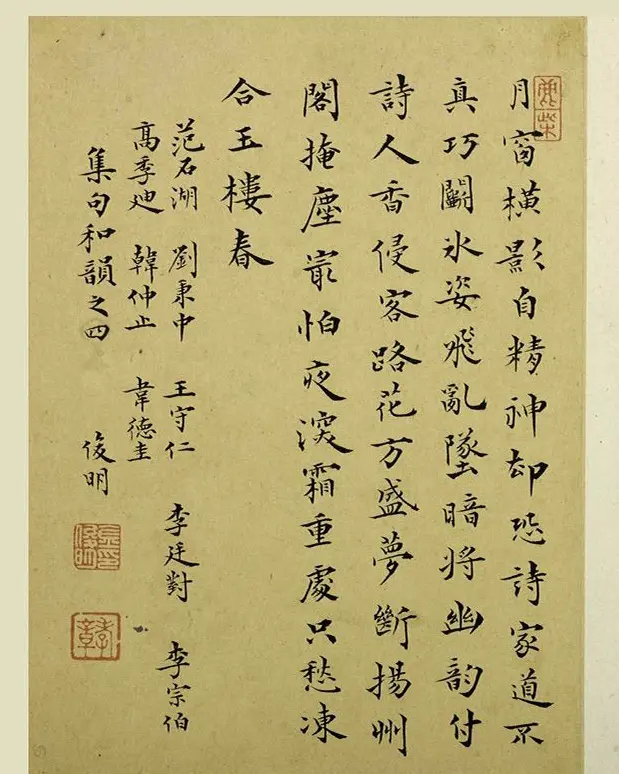 鹿柴
月窗橫影自精神却恐詩家道不
真巧鬭氷姿飛亂墜暗將幽韵付
詩人香侵客路花方盛夢斷揚州
閣掩塵㝡怕夜深霜重處只愁凍
合玉樓春
范石湖 劉秉中 王守仁 李廷對 李宗伯
高季迪 韓仲止 韋德圭
集句和韻之四 俊明
孝章